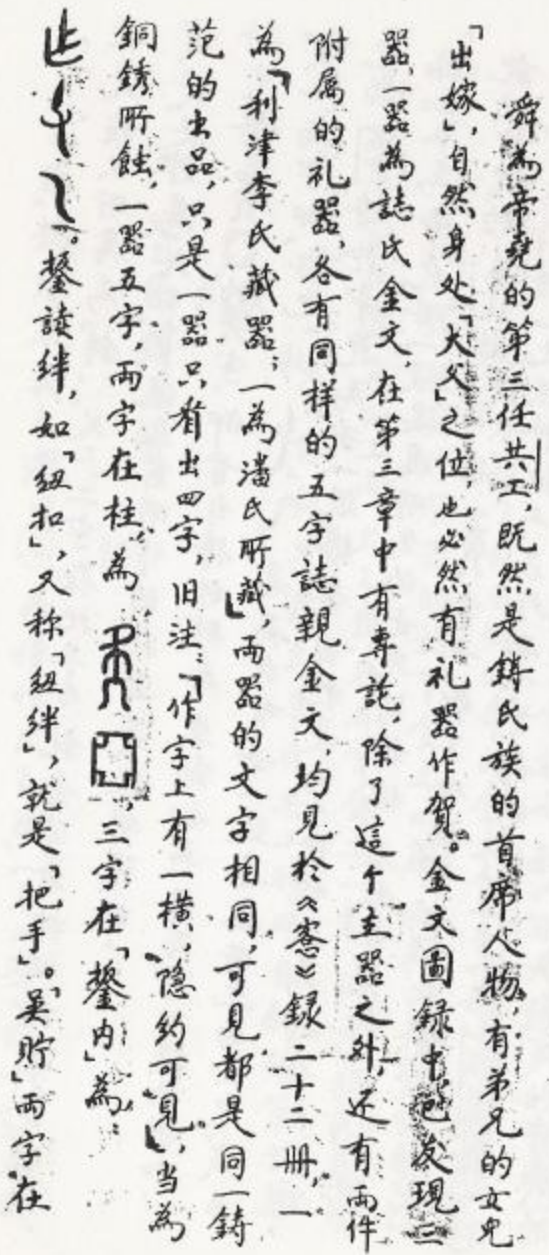 舜為帝堯的第三任共工，既然是鑄氏族的首席人物，有弟兄的女兒
「出嫁」，自然身处「大父」之位，也必然有礼器作賀。金文圖録中，已发現三
器，一器為誌氏金文，在第三章中有專說，除了這个主器之外，还有兩件
附属的礼器，各有同样的五字誌親金文，均見於《愙》録二十二册，一
為「利津李氏藏器；一為潘氏所藏」，兩器的文字相同，可見都是同一鑄
范的出品，只是一器只看出四字，旧注：「作字上有一横，隐約可見」，当為
銅銹所蝕，一器五字，兩字在柱，為，三字在「鋬内」為：
。鋬讀绊，如「纽扣」，又称「纽绊」，就是「把手」。「吳貯」兩字在